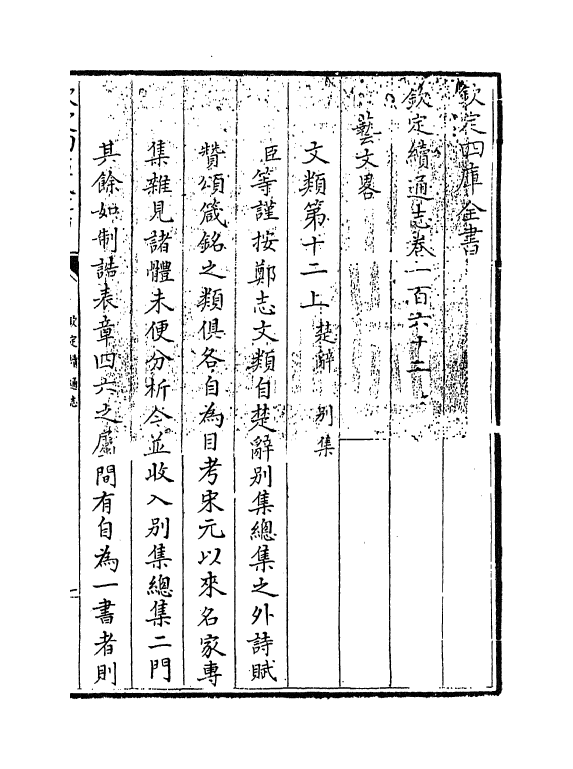 欽定四庫全書
欽定續通志卷一百六十二
藝文畧
文類第十二上 楚辭 别集
臣等謹按鄭志文類自楚辭别集總集之外詩賦
贊頌箴銘之類俱各自為目考宋元以來名家專
集雜見諸體未便分析今並收入别集總集二門
其餘如制誥表章四六之屬間有自為一書者則
欽定續通志